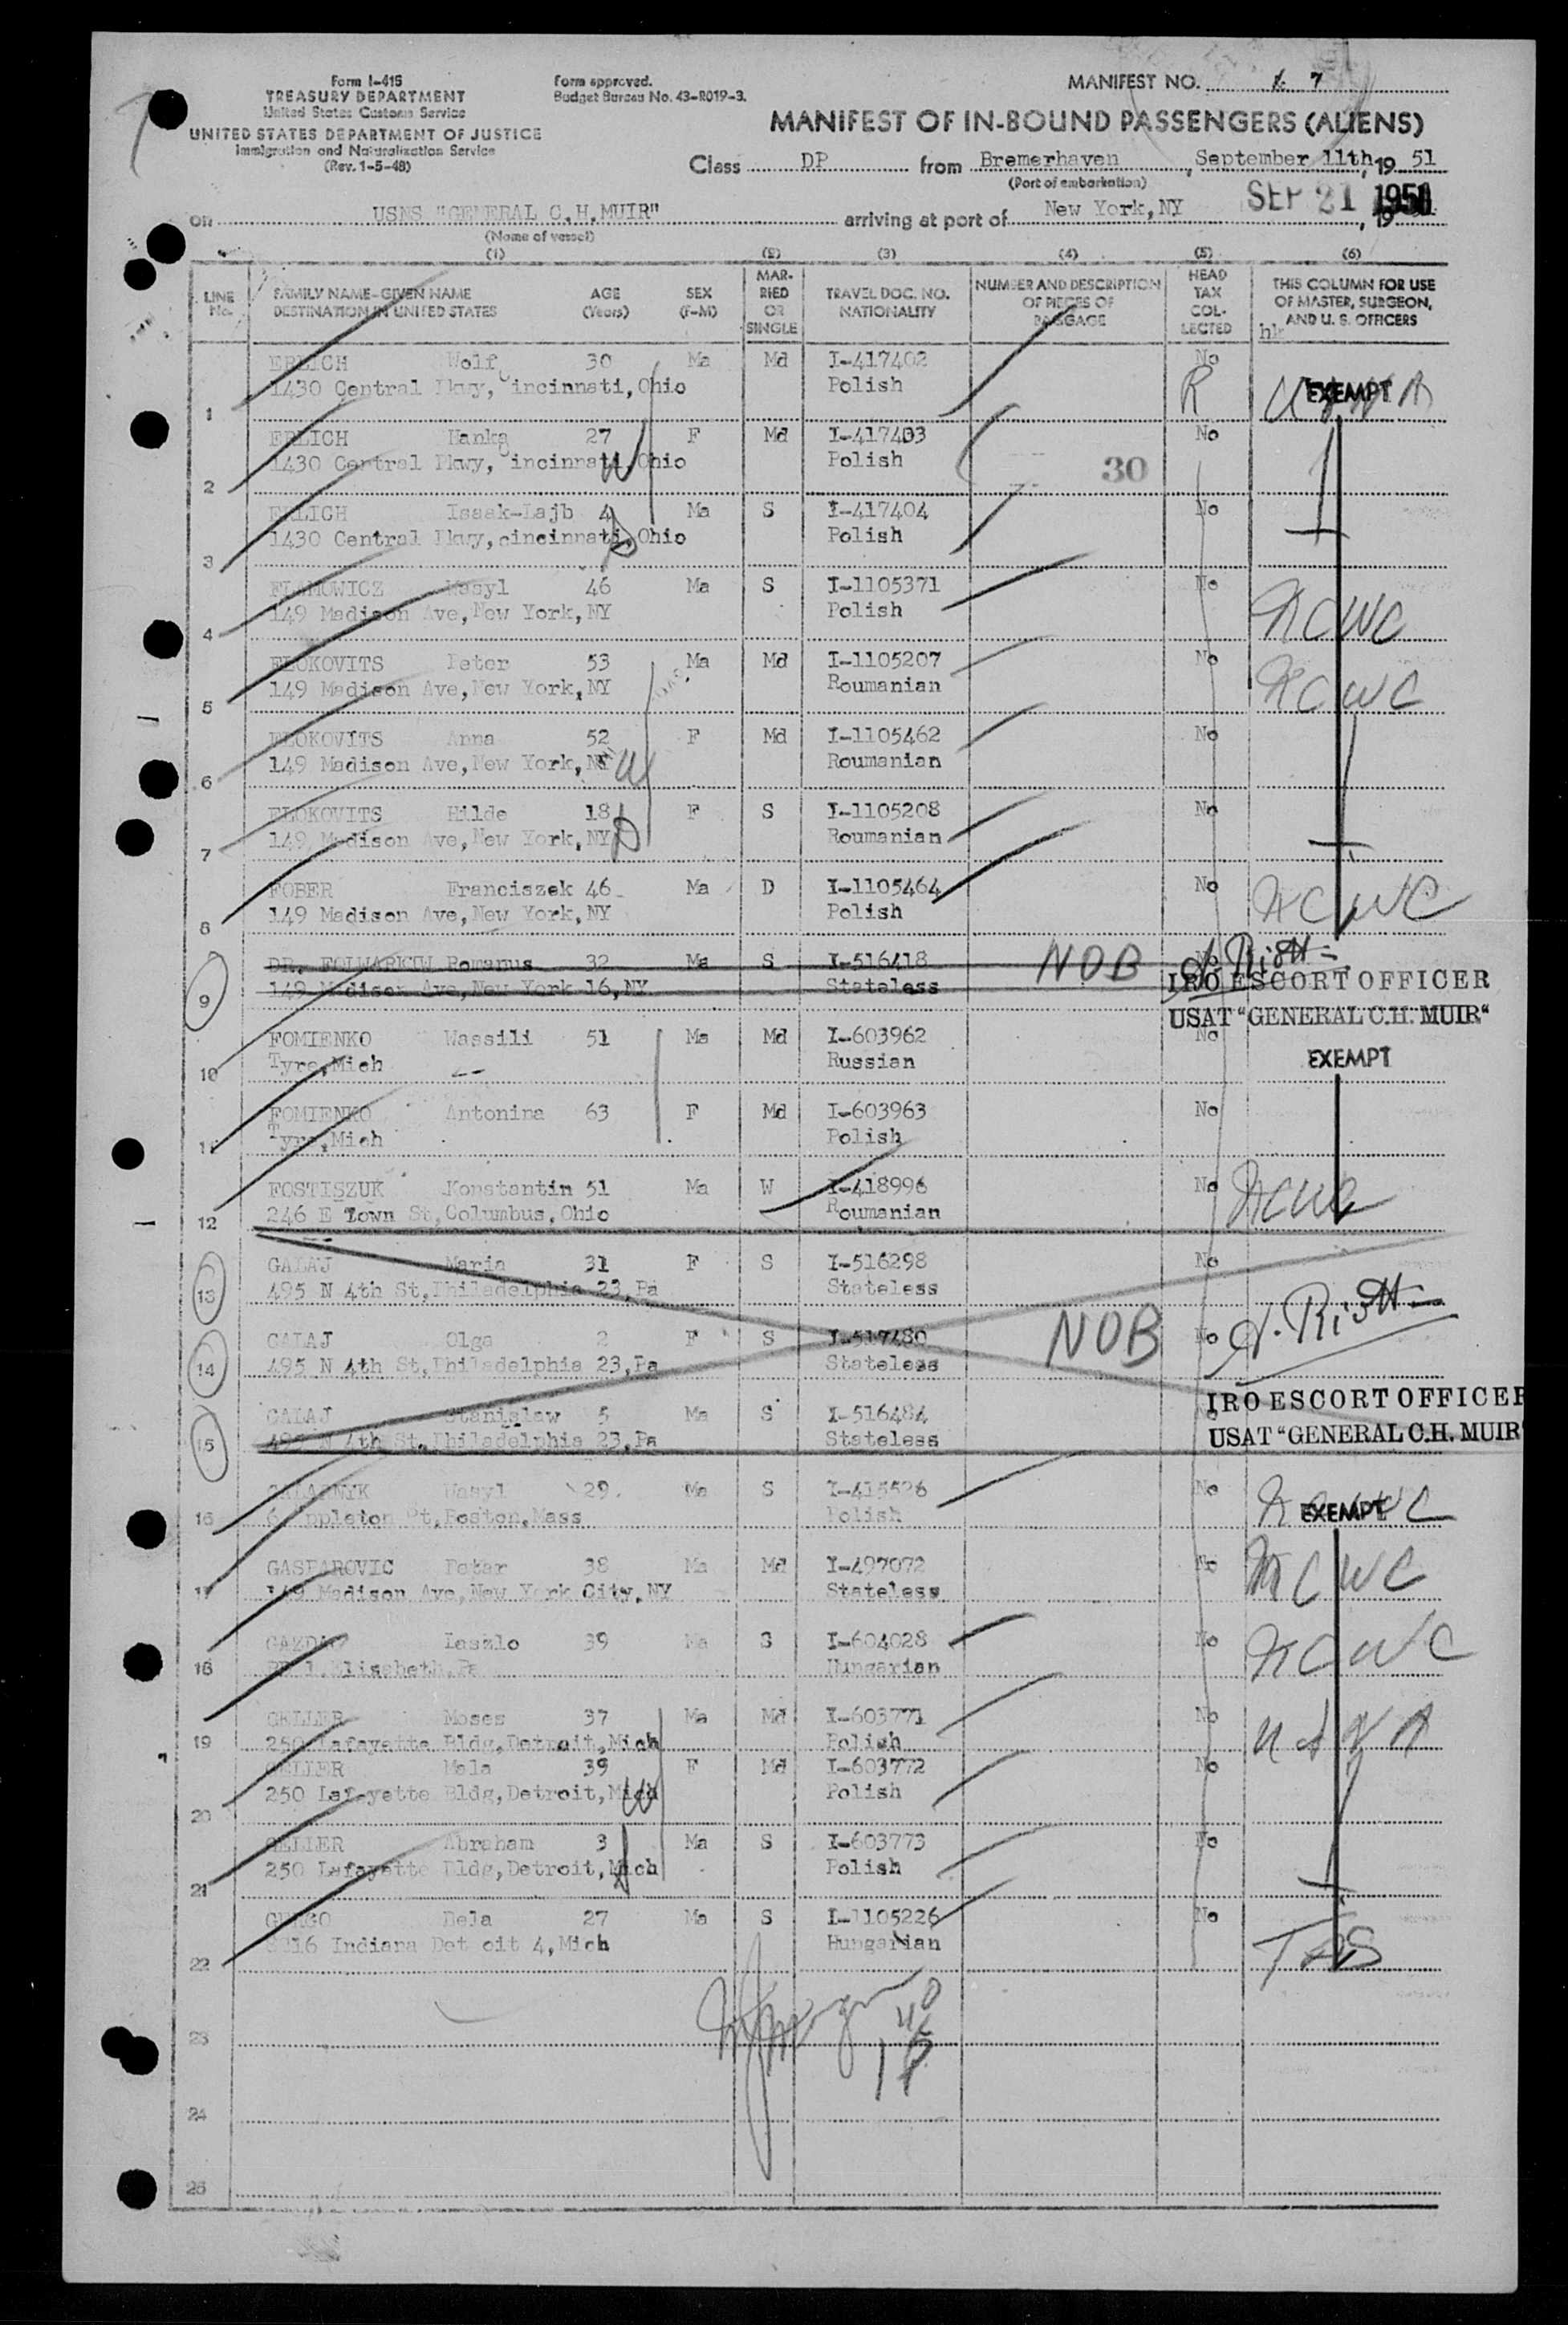 Form I-415
TREASURY DEPARTMENT
United States Customs Service
UNITED STATES DEPARTMENT OF JUSTICE
Immigration and Naturalization Service
(Rev. 1-5-48)
Form approved.
Budget Bureau No. 43-R019-3.
MANIFEST NO. 7
MANIFEST OF IN-BOUND PASSENGERS (ALIENS)
Class DP from Bremerhaven, September 11th, 19 51
(Port of embarkation)
on USNS "GENERAL C.H.MUIR" arriving at port of New York,NY SEP 21 1951, 19
(Name of vessel)
(1) (2) (3) (4) (5) (6)
LINE No. FAMILY NAME-GIVEN NAME DESTINATION IN UNITED STATES AGE (Years) SEX (F-M) MARRIED OR SINGLE TRAVEL DOC. NO. NATIONALITY NUMBER AND DESCRIPTION OF PIECES OF BAGGAGE HEAD TAX COLLECTED THIS COLUMN FOR USE OF MASTER, SURGEON, AND U. S. OFFICERS
ERLICH Wolf 30 Ma Md I-417402 No
1 1430 Central Pkwy, Cincinnati,Ohio Polish R EXEMPT
ERLICH Hanka 27 F Md I-417403 No
2 1430 Central Pkwy, Cincinnati,Ohio Polish 30
ERLICH Issak-Lajb 4 Ma S I-417404 No
3 1430 Central Pkwy,Cincinnati,Ohio Polish
Wasyl 46 Ma S I-1105371 No
4 149 Madison Ave,New York,NY Polish NCWC
ELOKOVITS Peter 53 Ma Md I-1105207 No
5 149 Madison Ave,New York,NY Roumanian NCWC
ELOKOVITS Anna 52 F Md I-1105462 No
6 149 Madison Ave,New York,NY Roumanian
ELOKOVITS Hilde 18 F S I-1105208 No
7 149 Madison Ave,New York,NY Roumanian
FOBER Franciszek 46 Ma D I-1105464 No
8 149 Madison Ave,New York,NY Polish NCWC
DR. Romanus 32 Ma S I-516418 NOB
9 149 Madison Ave,New York 16,NY Stateless IRO ESCORT OFFICER
USAT "GENERAL C.H. MUIR"
FOMIENKO Wassili 51 Ma Md I-603962 No
10 Tyre,Mich Russian EXEMPT
FOMIENKO Antonina 63 F Md I-603963 No
11 Tyre,Mich Polish
FOSTISZUK Konstantin 51 Ma W I-418996 No
12 246 E Town St,Columbus,Ohio Roumanian NCWC
GALAJ Maria 31 F S I-516298 No
13 495 N 4th St,Philadelphia 23,Pa Stateless
GALAJ Olga 2 F S I-517480 NOB No
14 495 N 4th St,Philadelphia 23,Pa Stateless
GALAJ Stanislaw 5 Ma S I-516484 IRO ESCORT OFFICER
15 495 N 4th St,Philadelphia 23,Pa Stateless USAT "GENERAL C.H. MUIR"
Wasyl 29 Ma S No
16 Boston,Mass Polish EXEMPT NCWC
GASPAROVIC Petar 38 Ma Md I-497072 No
17 149 Madison Ave,New York City,NY Stateless NCWC
Laszlo 39 Ma S I-604028 No
18 Elisabeth,Pa Hungarian NCWC
GELLER Moses 37 Ma Md I-603771 No
19 250 Lafayette Bldg,Detroit,Mich Polish
GELLER Mala 39 F Md I-603772 No
20 250 Lafayette Bldg,Detroit,Mich Polish
GELLER Abraham 3 Ma S I-603773 No
21 250 Lafayette Bldg,Detroit,Mich Polish
Bela 27 Ma S I-1105226 No
22 Indiana Detroit 4,Mich Hungarian
23
24
25